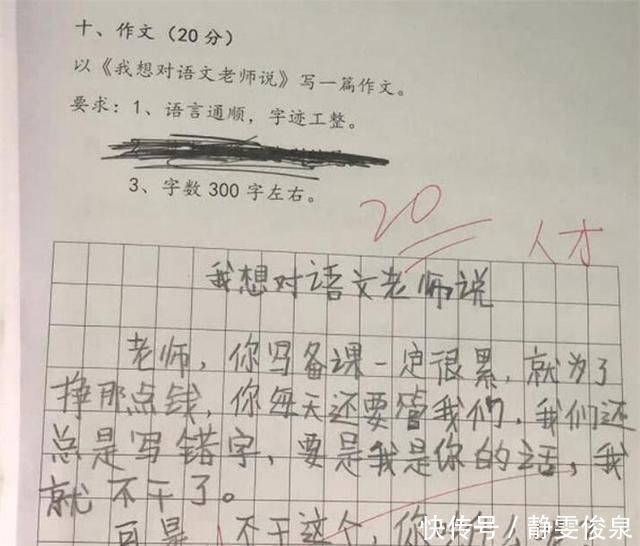 十、作文（20分）
以《我想对语文老师说》写一篇作文。
要求：1、语言通顺，字迹工整。
3、字数300字左右。
20
人才
我想对语文老师说
老师，你写备课一定很累，就为了
挣那点钱，你每天还要管我们，我们还
总是写错字，要是我是你的话，我
就不干了。
可是，不干这个，你
快传号／静雯俊泉